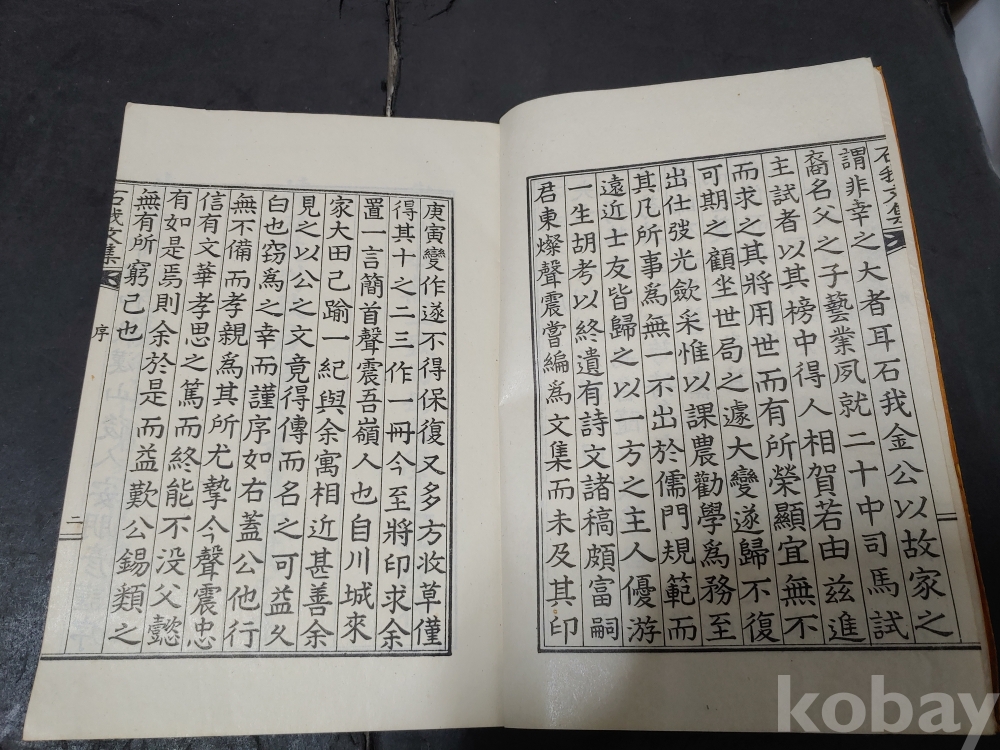 謂非幸之大者耳石我金公以故家之
裔名父之子藝業夙就二十中司馬試
主試者以其榜中得人相賀若由玆進
而求之其將用世而有所榮顯宜無不
可期之顧坐世局之遽大變遂歸不復
出仕弢光斂采惟以課農勸學爲務至
其凡所事爲無一不出於儒門規範而
遠近士友皆歸之以一方之主人優游
一生胡考以終遺有詩文諸稿頗富嗣
君東燦聲震嘗編爲文集而未及其印
庚寅變作遂不得保復又多方收草僅
得其十之二三作一冊今至將印求余
置一言簡首聲震吾嶺人也自川城來
家大田已踰一紀與余寓相近甚善余
見之以公之文竟得傳而名之可益久
白也窃爲之幸而謹序如右蓋公他行
無不備而孝親爲其所尤摯今聲震忠
信有文華孝思之篤而終能不没父懿
有如是焉則余於是而益歎公錫類之
無有所窮已也
石我文集
序
二
kobay